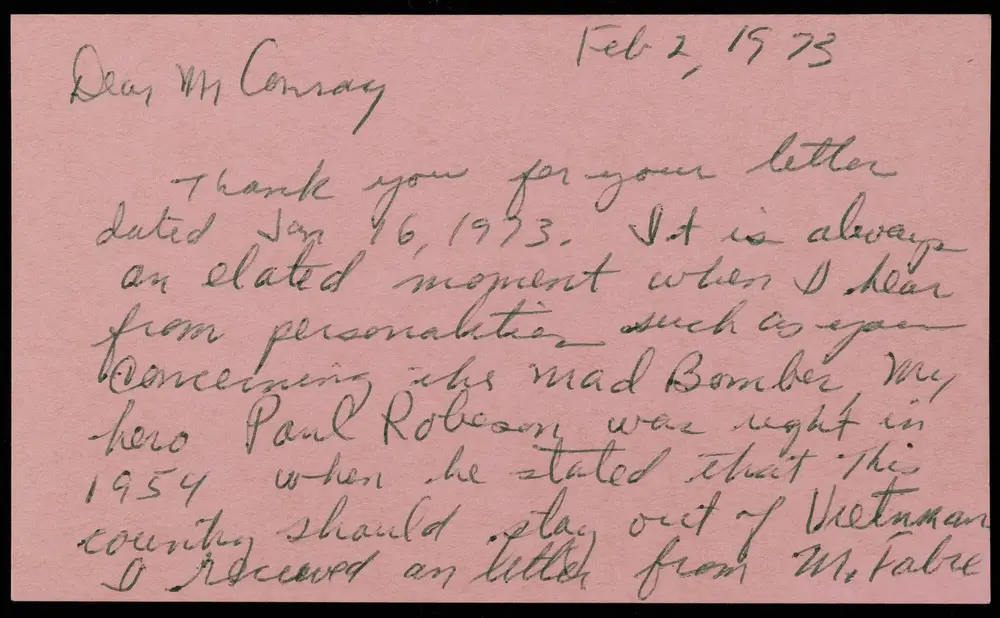 Feb 2, 1973
Dear Mr Conroy
Thank you for your letter
dated Jan 16, 1973. It is always
an elated moment when I hear
from personalities such as you
Concerning the Mad Bomber, My
hero Paul Robeson was right in
1954 when he stated that this
country should stay out of Vietnam
I received an letter from M. Fabre